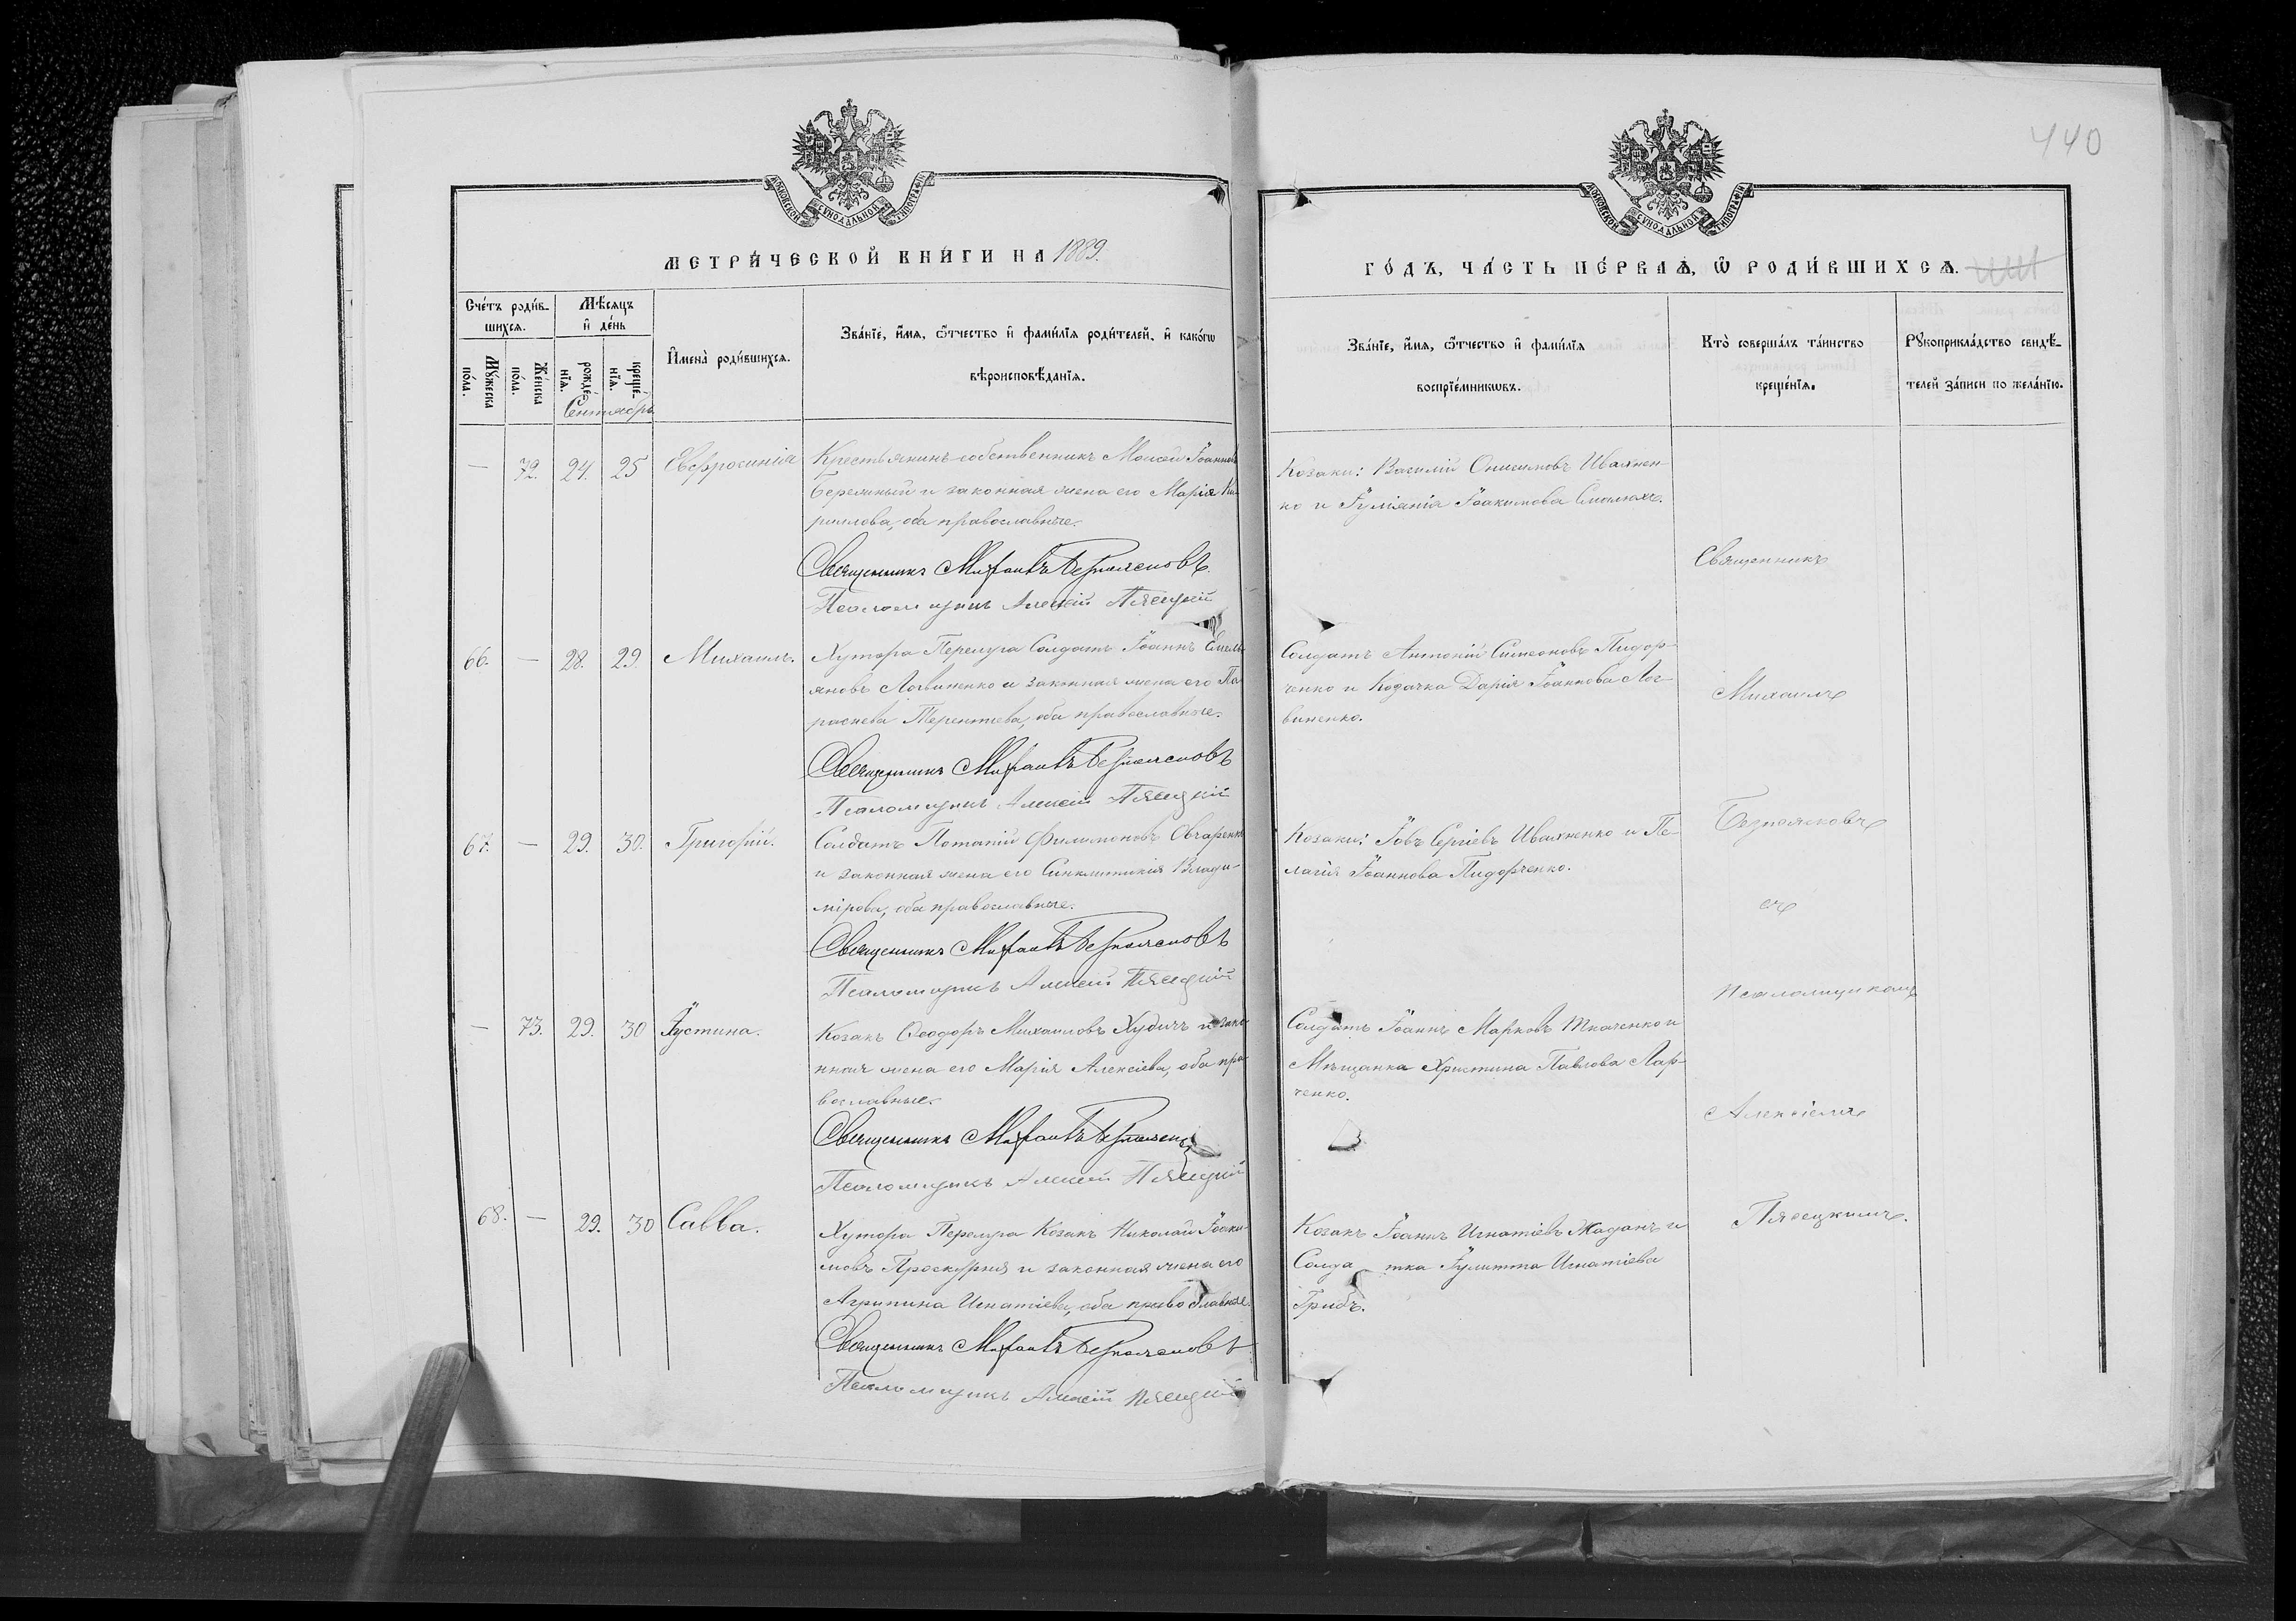 440
МОСКОВСКОЙ СѴНОДАЛЬНОЙ ТИПОГРАФІИ
МОСКОВСКОЙ СѴНОДАЛЬНОЙ ТИПОГРАФІИ
МЕТРИ́ЧЕСКОЙ КНИ́ГИ НА 1889.
ГО́ДЪ, ЧА́СТЬ ПЕ́РВАѦ, Ѡ҆ РОДИ́ВШИХСѦ.
Сче́тъ роди́в-
шихсѧ.
Мѣ́сѧцъ
и҆ де́нь
Мꙋ́жеска
по́ла.
Же́нска
по́ла.
рожде́-
нїѧ.
креще́-
нїѧ.
И҆мена̀ роди́вшихсѧ.
Зва́нїе, и҆́мѧ, ѻ҆́тчество и҆ фами́лїѧ роди́телей, и҆ како́гѡ
вѣроисповѣ́данїѧ.
Зва́нїе, и҆́мѧ, ѻ҆́тчество и҆ фами́лїѧ
воспрїе́мникѡвъ.
Кто̀ соверша́лъ та́инство
креще́нїѧ.
Рꙋкоприкла́дство свидѣ́-
телей за́писи по жела́нїю.
Сентябрь
— 72. 24. 25 Евфросинія
Крестьянинъ-собственникъ Моисей Іоанновъ
Беремный и законная жена его Марія Ки-
рилова, оба православные.
Священникъ Михаилъ Безпояскοвъ.
Псаломщикъ Алексій Плясецкій
Козаки: Василій Онисимовъ Ивахнен-
ко и Іуліанія Іоакимова
66. — 28. 29. Михаилъ.
Хутора Перелуга Солдатъ Іоаннъ Емель-
яновъ Логвиненко и законная жена его Па-
раскева Терентіева, оба православные.
Священникъ Михаилъ Безпоясковъ
Псаломщикъ Алексій Плясецкій
Солдатъ Антоній Симеоновъ Пидор-
ченко и Козачка Дарія Іоаннова Лог-
виненко.
67. — 29. 30. Григорій.
Солдатъ Потапій Филимоновъ Овчаренко
и законная жена его Синклитикія Влади-
мірова, оба православные.
Священникъ Михаилъ Безпоясковъ
Псаломщикъ Алексій Плясецкій
Козаки: Іовъ Сергіевъ Ивахненко и Пе-
лагія Іоаннова Пидорченко.
— 73. 29. 30 Іустина.
Козакъ Ѳеодоръ Михаиловъ Худичъ и зако-
нная жена его Марія Алексіева, оба пра-
вославные.
Священникъ Михаилъ Безпоясковъ
Псаломщикъ Алексій Плясецкій
Солдатъ Іоаннъ Марковъ Ткаченко и
Мѣщанка Христина Павлова Лар-
ченко.
68. — 29. 30 Савва.
Хутора Перелуга Козакъ Николай Іоаки-
мовъ Проскурня и законная жена его
Агрипина Игнатіева, оба православные.
Священникъ Михаилъ Безпоясковъ
Псаломщикъ Алексій Плясецкій
Козакъ Іоаннъ Игнатіевъ Жаданъ и
Солдатка Іулитта Игнатіева
Грибъ.
Священникъ
Михаилъ
Безпоясковъ
съ
Псаломщикомъ
Алексіемъ
Плясецкимъ.